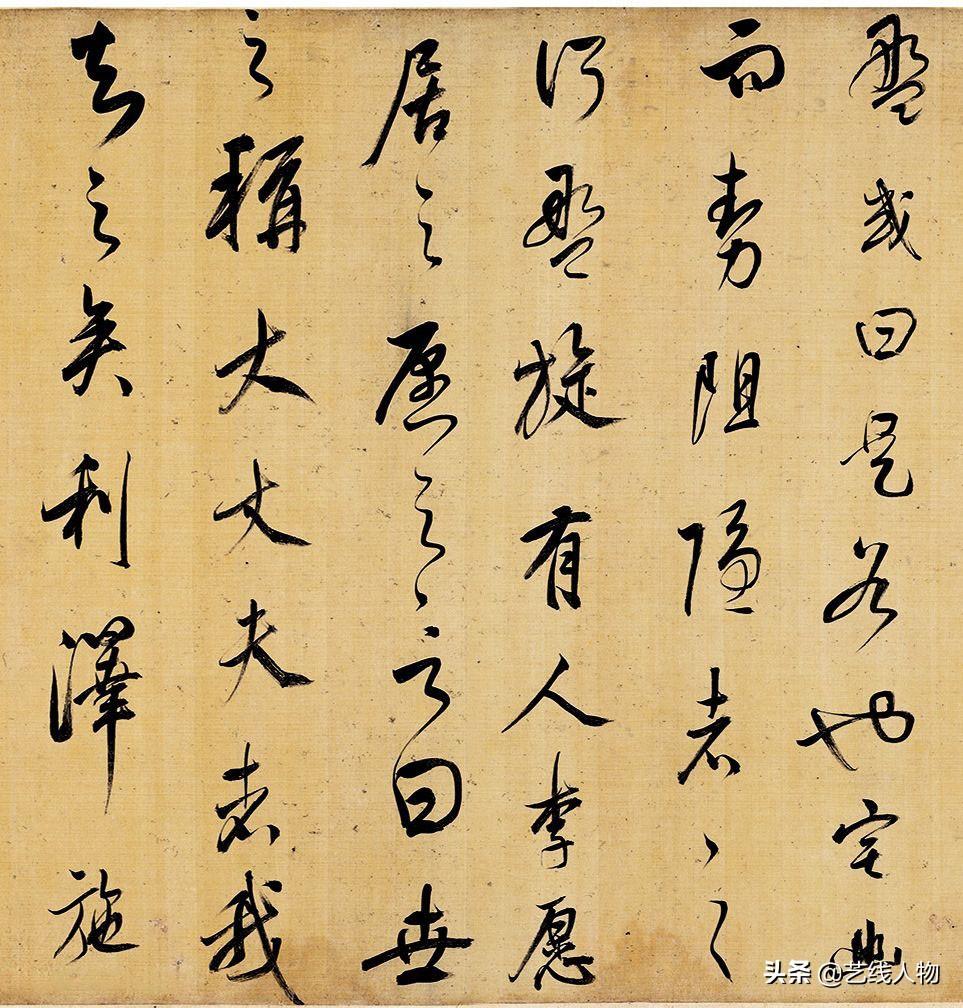 盤或曰是谷也宅幽
而勢阻隱者之
所盤旋有人李愿
居之愿之言曰世
之稱大丈夫者我
知之矣利澤施
头条 @艺线人物